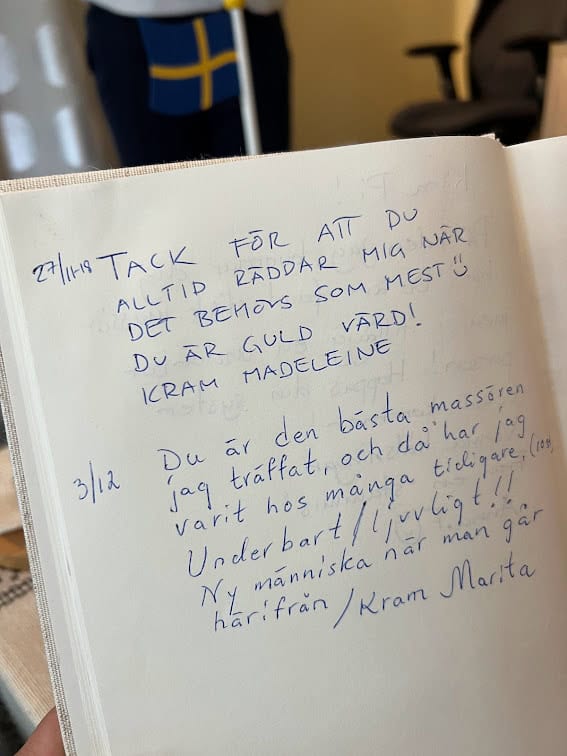 27/11-18 TACK FÖR ATT DU
ALLTID RÄDDAR MIG NÄR
DET BEHÖVS SOM MEST
DU ÄR GULD VÄRD!
KRAM MADELEINE
3/12 Du är den bästa massören
jag träffat, och då har jag
varit hos många tidigare,
Underbart/ljuvligt!!
Ny människa när man går
härifrån/Kram Marita